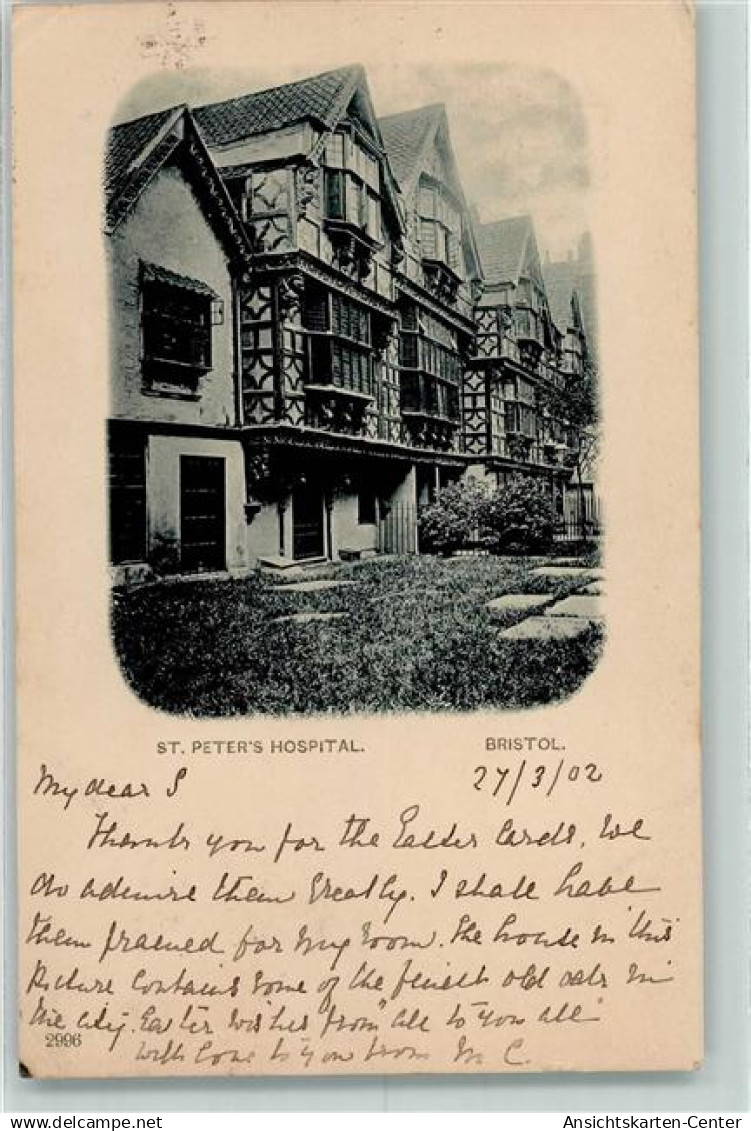 ST. PETER'S HOSPITAL. BRISTOL.
My dear S 27/3/02
Thank you for the Easter Cards, We
do admire them Greatly. I shall have
them framed for my room. The house in this
Picture Contains Some of the finest old in
the city. Easter Wishes from all to you all
2996
With love to you from M C.
www.oldthing.de Ansichtskarten-Center